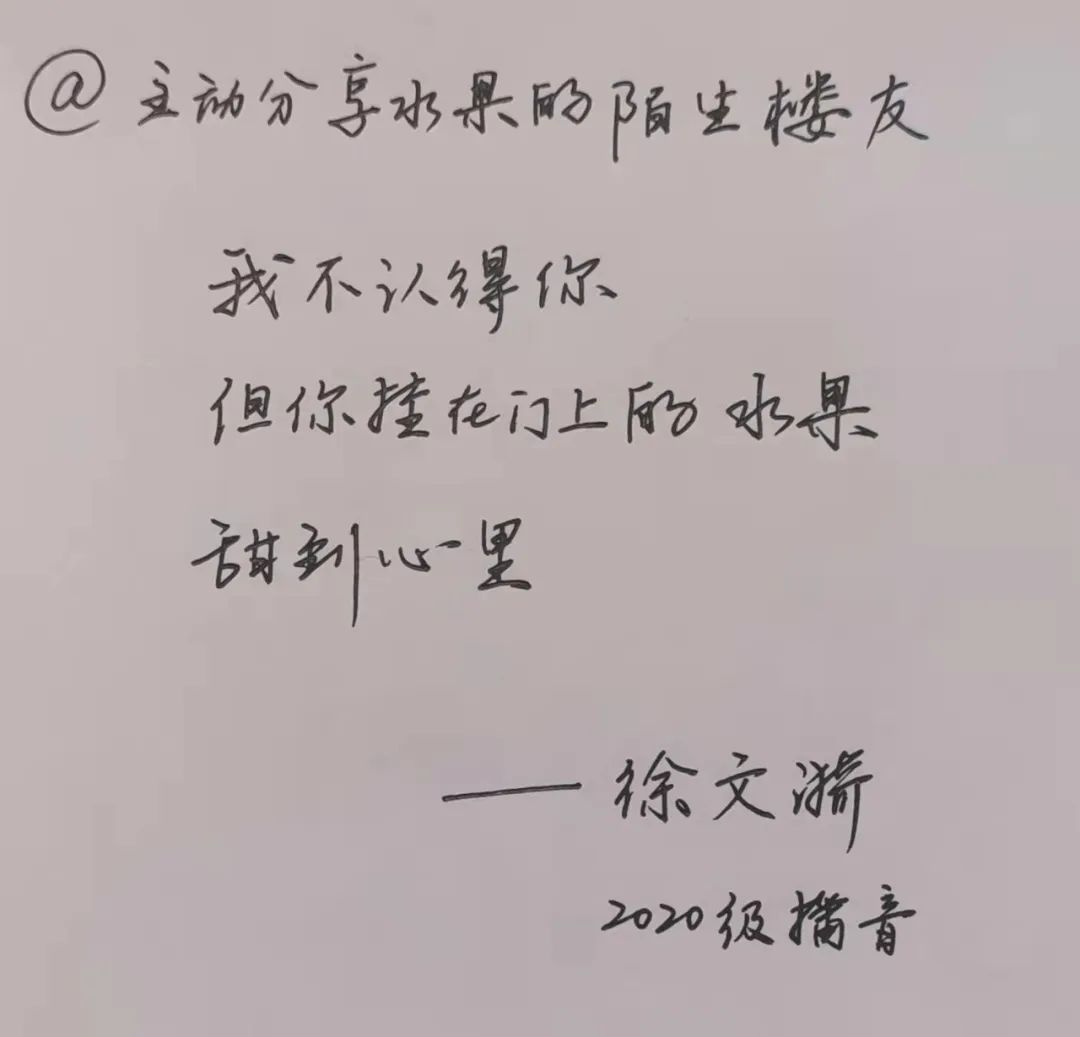 @主动分享水果的陌生楼友
我不认得你
但你挂在门上的水果
甜到心里
——徐文漪
2020级播音